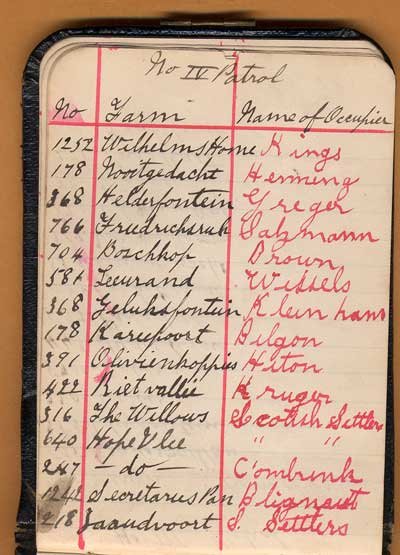 No IV Patrol
No Farm Name of Occupier
1252 Wilhelms Home Kings
178 Nooitgedacht Henning
368 Helderfontein Greger
766 Friedrichsruh Salzmann
704 Boschkop Brown
581 Leeurand Wissels
368 Geluksfontein Kleinhans
178 Kareepoort Dilgon
391 Olivienkoppies Hiton
422 Rietvallei Kruger
316 The Willows Scotish Settlers
640 Hope Vlee " "
247 - do - Combrink
1242 Secretarus Pan Blignaut
218 Jaandvoort S. Settlers